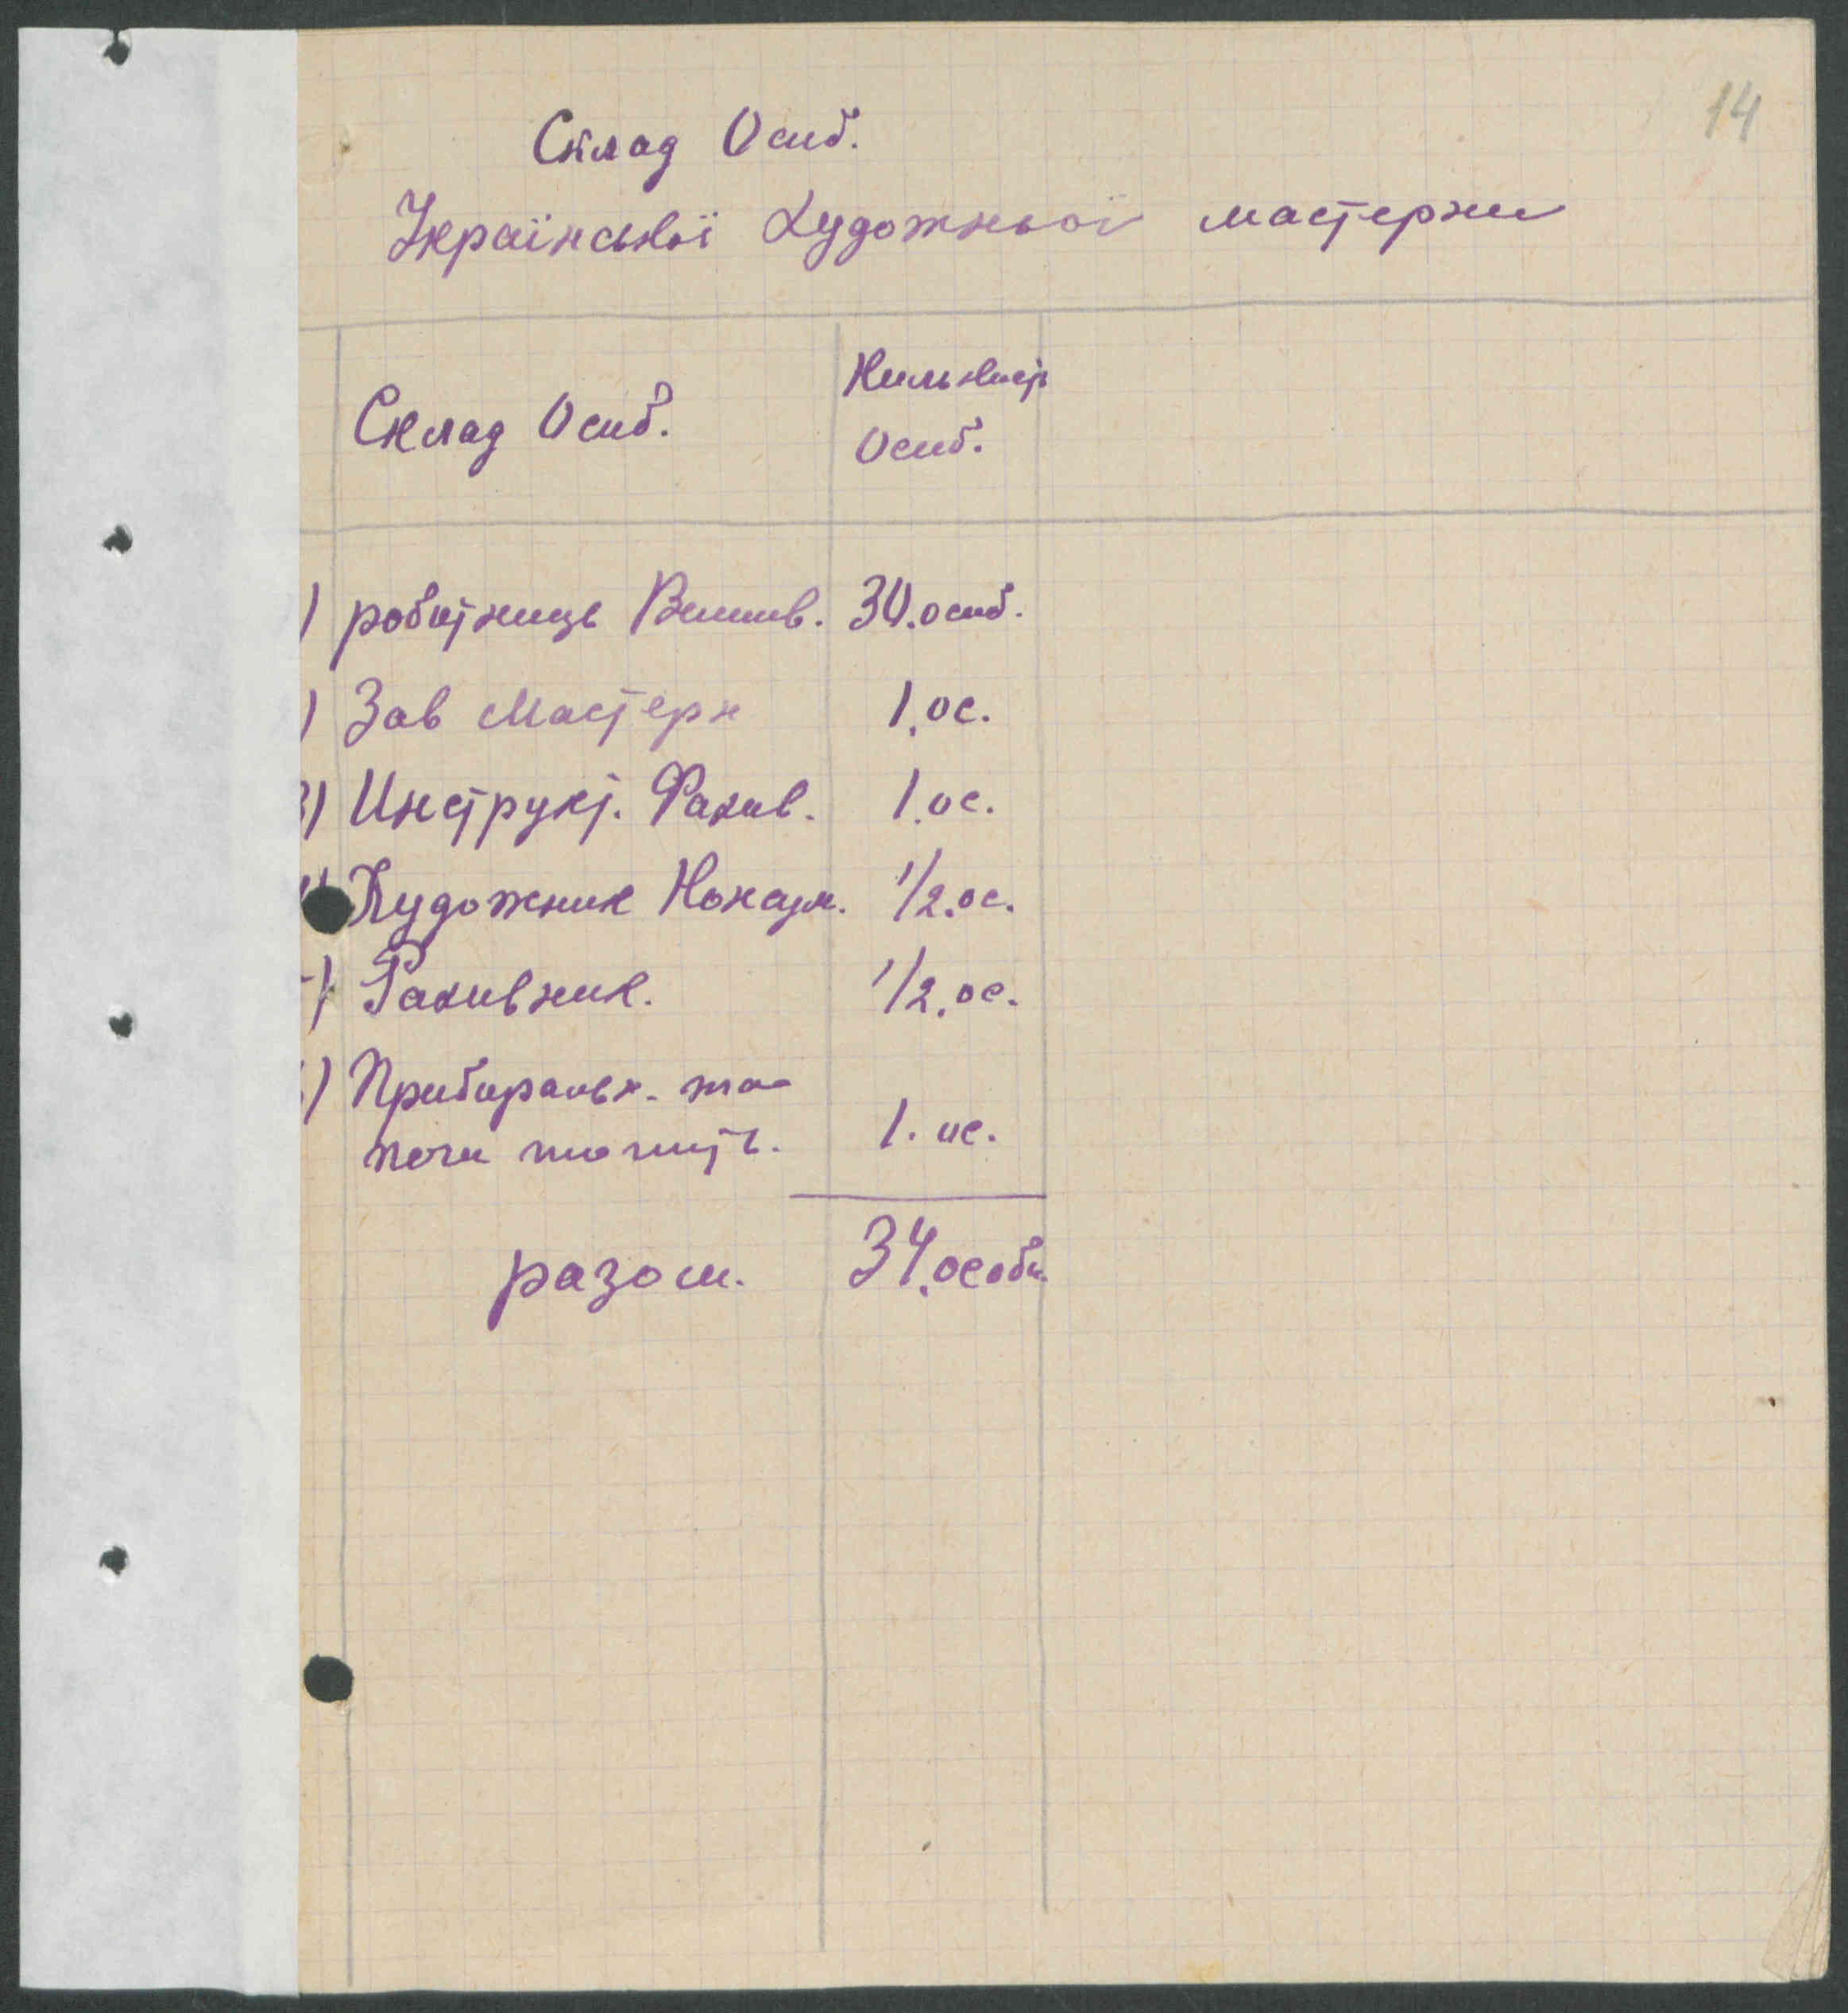 14
Склад Осиб.
Української Художньої мастерни
Склад Осиб.
Килькист
Осиб.
) робитниць Вишив. 30. осиб.
) Зав Мастерн 1. ос.
3) Инструкт. Фахив. 1. ос.
Художник 1/2. ос.
) Рахивник. 1/2. ос.
) Прибиральн. та
печи топить. 1. ос.
разом. 34. особи